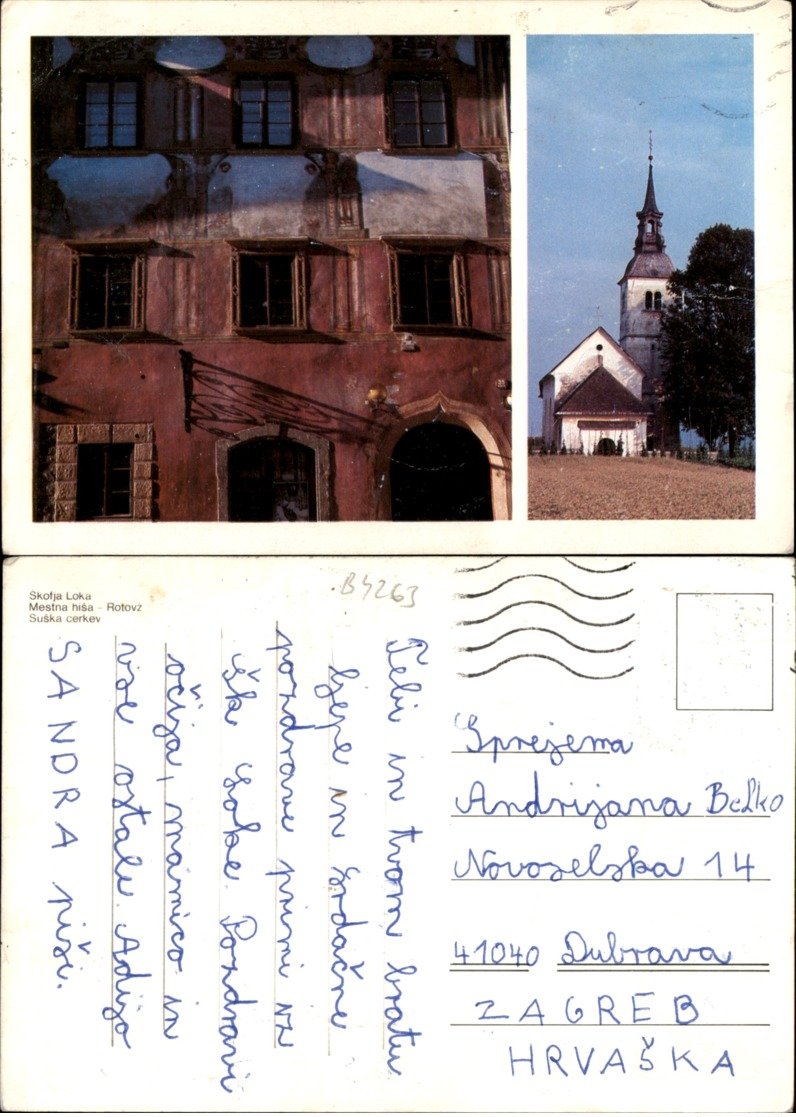 Škofja Loka
Mestna hiša - Rotovž
Suška cerkev
B4263
Tebi in tvom bratu
ljepe in srdačne
pozdrave primi iz
Šk Loke. Pozdravi
očija, mamico in
vse ostale. Adijo
SANDRA piši.
Sprejema
Andrijana Belko
Novoselska 14
41040 Dubrava
ZAGREB
HRVAŠKA